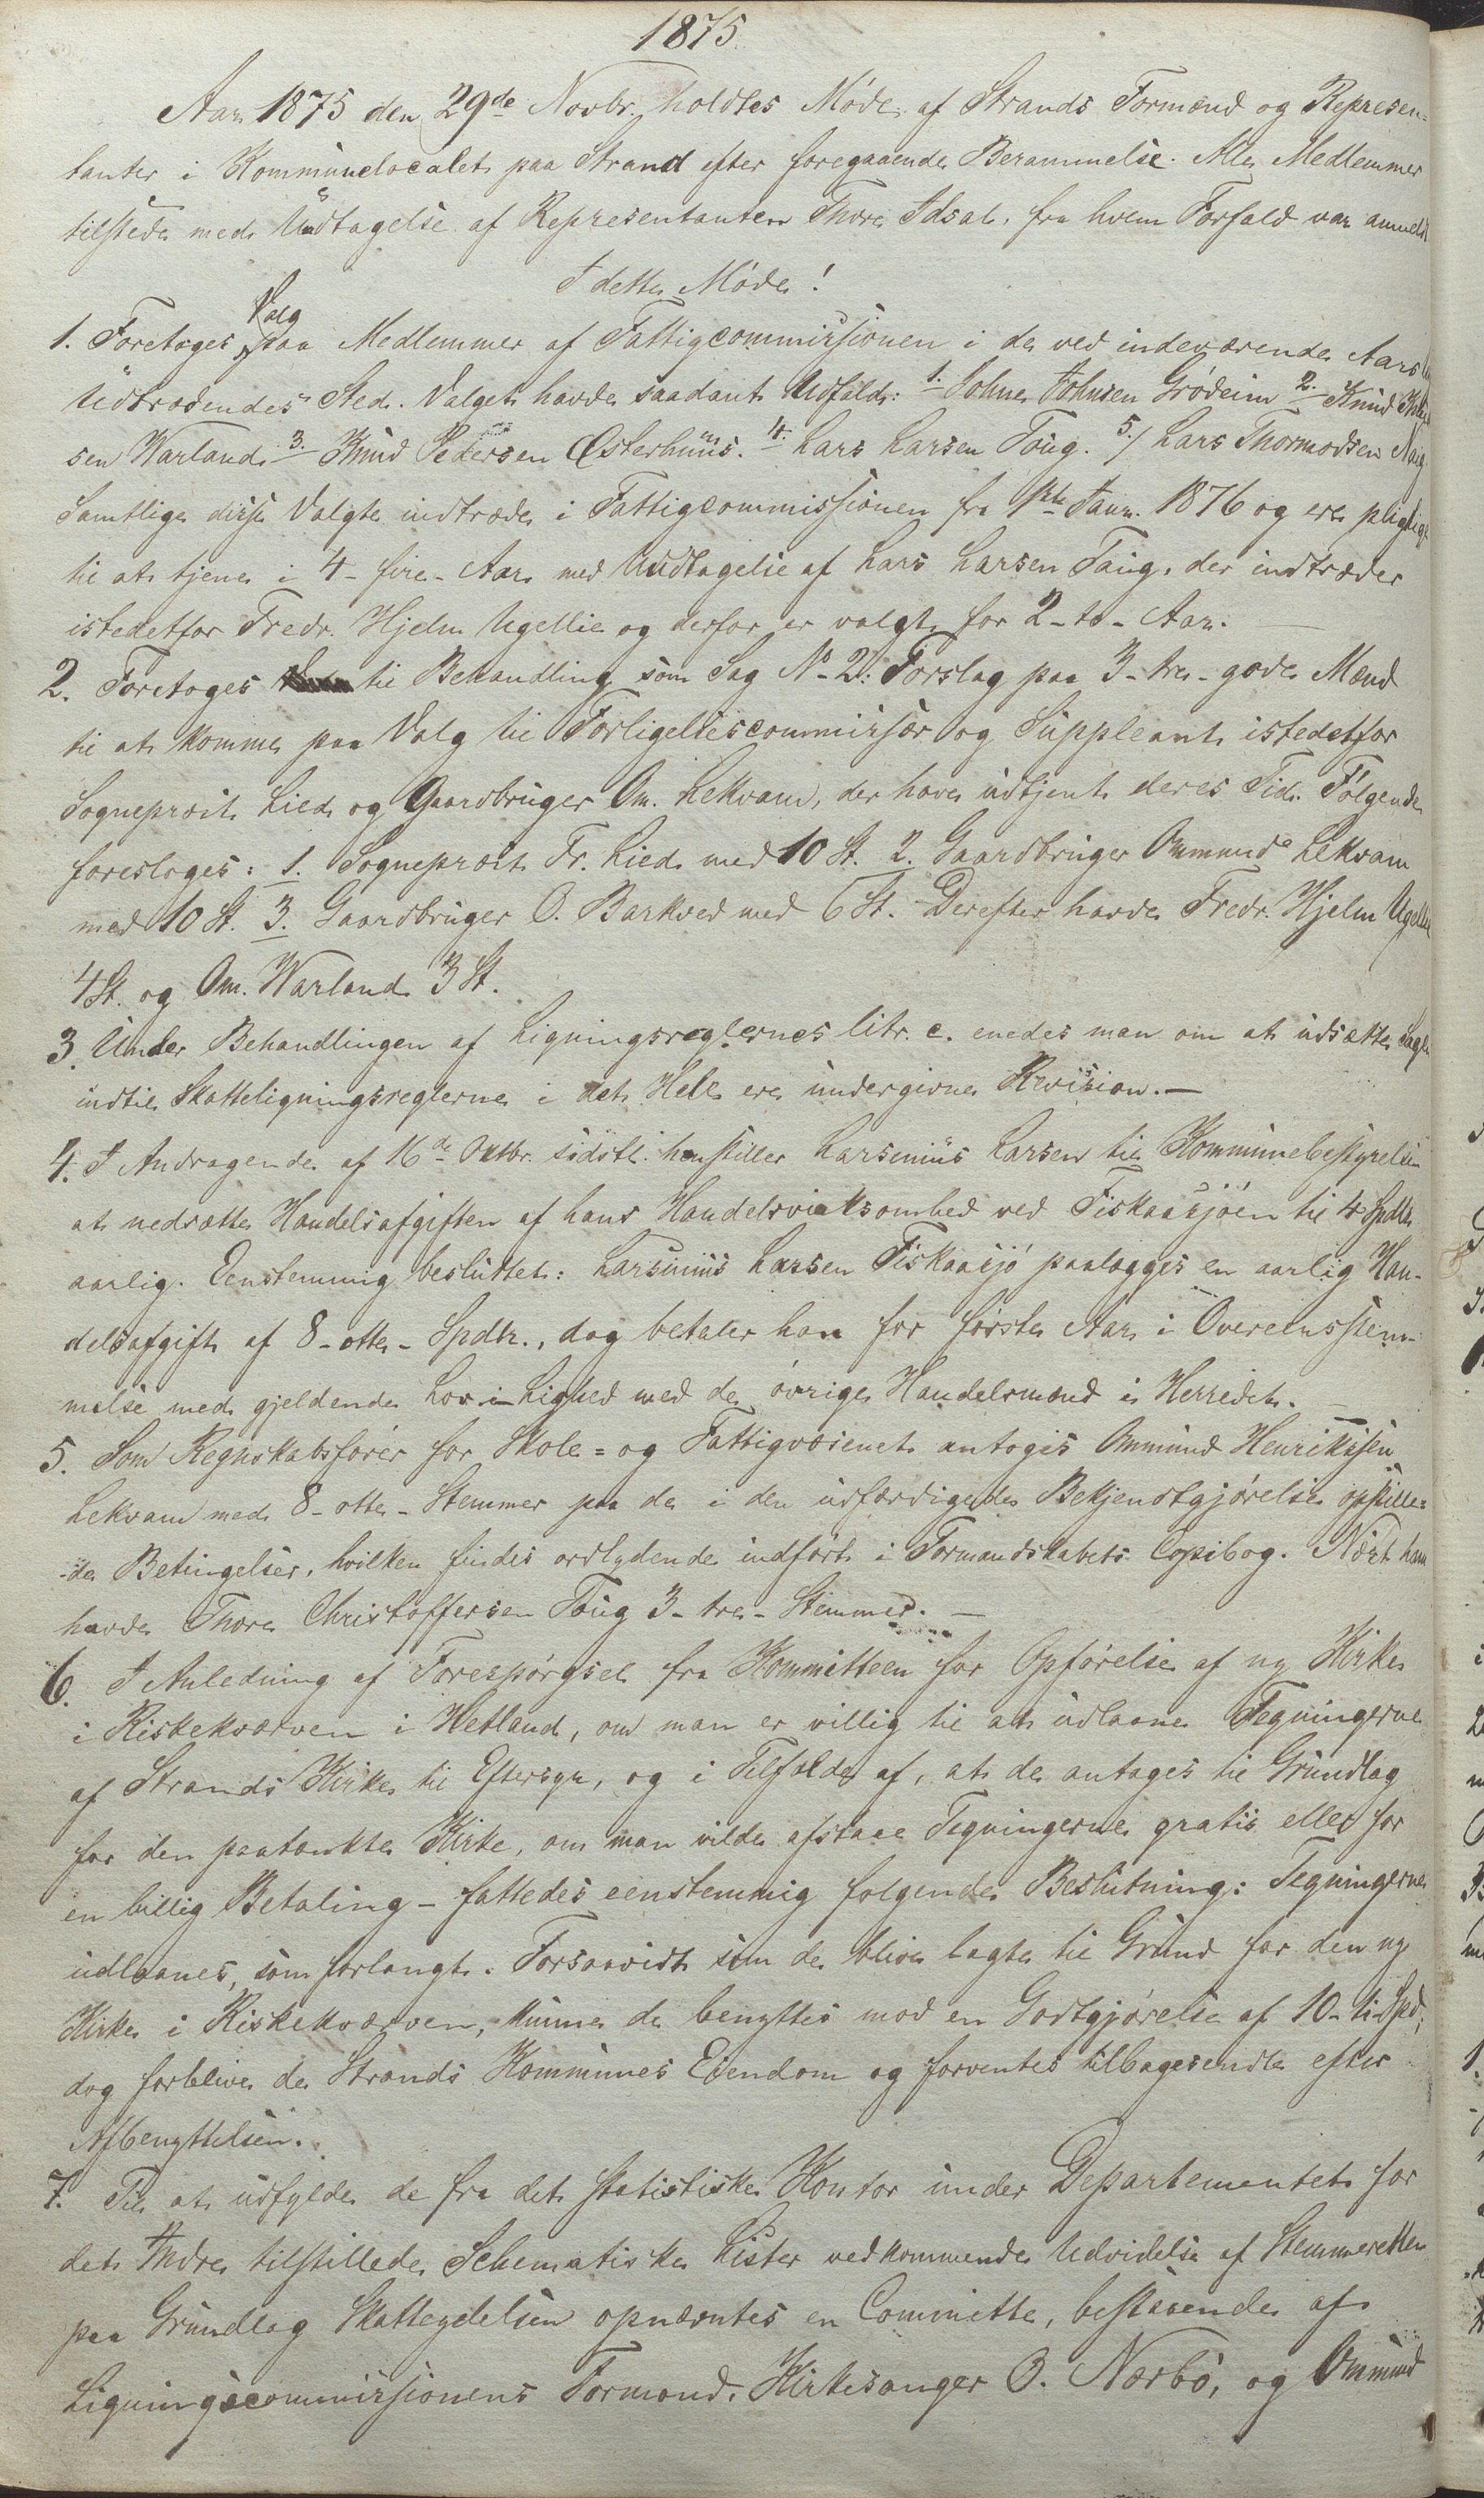 1875.
Aar 1875 den 29de Novbr. holdtes Møde af Strands Formænd og Represen=
tanter i Kommunelocalet paa Strand efter foregaaende Berammelse. Alle Medlemmer
tilstede med Undtagelse af Representanten Thore Idsal, fra hvem Forfald var anmeldt
I dette Møde!
1. Foretoges Valg paa Medlemmer af Fattigcommissionen i de ved indeværende Aars
Udtrædendes Sted. Valget havde saadant Udfald: 1. Johne Johnsen Grødeim 2. Knud
sen Warland 3. Knud Pedersen Østerhuus. 4. Lars Larsen Toug. 5./ Lars Thormodsen
Samtlige disse Valgte indtræde i Fattigcommissionen fra 1ste Janr. 1876 og ere pligtige
til at tjene i 4 - fire - Aar med Undtagelse af Lars Larsen Taug, der indtræder
istedetfor Fredr. Hjelm Ugellie og derfor er valgt for 2 - to - Aar.
2. Foretoges til Behandling som Sag No 2: Forslag paa 3 - tre - gode Mænd
til at komme paa Valg til Forligelsescommissær og Suppleant istedetfor
Sogneprest Lied og Gaardbruger Om. Lekvam, der have udtjent deres Tid. Følgende
foresloges: 1. Sogneprest Fr. Lied med 10 St. 2. Gaardbruger Ommund Lekvam
med 10 St. 3. Gaardbruger O. Barkved med 6 St. Derefter havde Fredr. Hjelm Ugellie
4 St. og Om. Warland 3 St.
3. Under Behandlingen af Ligningsreglernes litr. c. enedes man om at udsætte Sagen
indtil Skatteligningsreglerne i det Hele ere undergivne Revision. —
4. I Andragende af 16de Oktbr. sidstl. henstiller Larsenius Larsen til Kommunebestyrelsen
at nedsætte Handelsafgiften af hans Handelsvirksomhed ved Fiskaasjøen til 4 Spdlr
aarlig. Eenstemmig besluttet: Larsinius Larsen Fiskaasjø paalægges en aarlig Han-
delsafgift af 8 - otte - Spdlr., dog betaler han for første Aar i Overeensstem-
melse med gjeldende Lov i Lighed med de øvrige Handelsmænd i Herredet. —
5. Som Regnskabsfører for Skole= og Fattigvæsenet antoges Ommund Henriksen
Lekvam med 8 - otte - Stemmer paa de i den udfærdigede Bekjendtgjørelse opstille=
de Betingelser, hvilken findes ordlydende indført i Formandskabets Copibog. Næst ham
havde Thore Christoffersen Toug 3 - tre - Stemmer. —
6. I Anledning af Forespørgsel fra Kommitteen for Opførelse af ny Kirke
i Riskekværven i Hetland, om man er villig til at udlaane Tegningerne
af Strands Kirke til Eftersyn, og i Tilfælde af, at de antages til Grundlag
for den paatænkte Kirke, om man vilde afstaae Tegningerne gratis eller for
en billig Betaling - fattedes eenstemmig følgende Beslutning: Tegningerne
udlaanes, som forlangt. Forsaavidt som de blive lagte til Grund for den ny
Kirke i Riskekværven, kunne de benyttes mod en Godtgjørelse af 10 - ti Spd;
dog forblive de Strands Kommunes Eiendom og forventes tilbagesendte efter
Afbenyttelsen.
7. Til at udfylde de fra det statistiske Kontor under Departementet for
det Indre tilstillede Schematiske Lister vedkommende Udvidelse af Stemmeretten
paa Grundlag Skatteydelsen opnævntes en Committe, bestaaende af
Ligningscommissionens Formand, Kirkesanger O. Nærbø, og Ommund